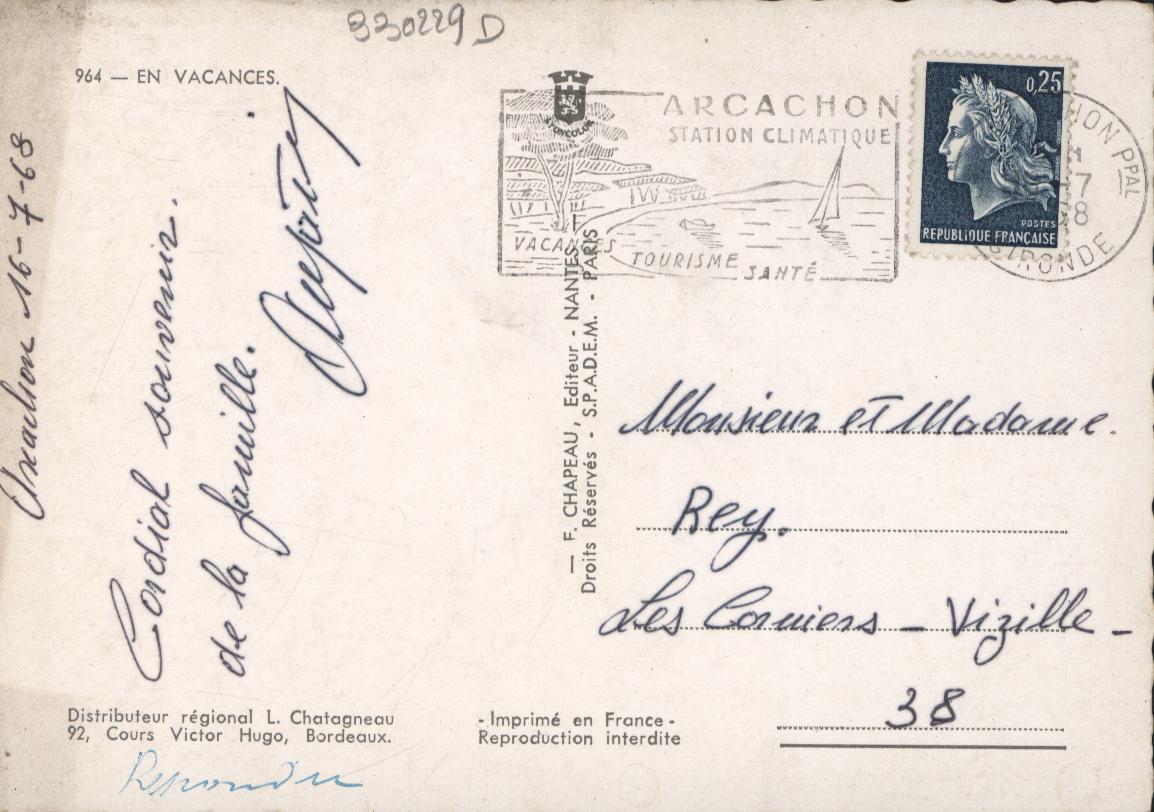 930229 D
964 — EN VACANCES.
16-7-68
Cordial souvenir.
de la famille.
ARCACHON
STATION CLIMATIQUE
VACANCES
TOURISME
SANTÉ
0,25
POSTES
REPUBLIQUE FRANÇAISE
HON PPAL
7
8
GIRONDE
— F. CHAPEAU, Editeur - NANTES
Droits Réservés - S.P.A.D.E.M. - PARIS
Monsieur et Madame.
Rey.
Les Corniers - Vizille -
38
Distributeur régional L. Chatagneau
92, Cours Victor Hugo, Bordeaux.
- Imprimé en France -
Reproduction interdite
Repondu